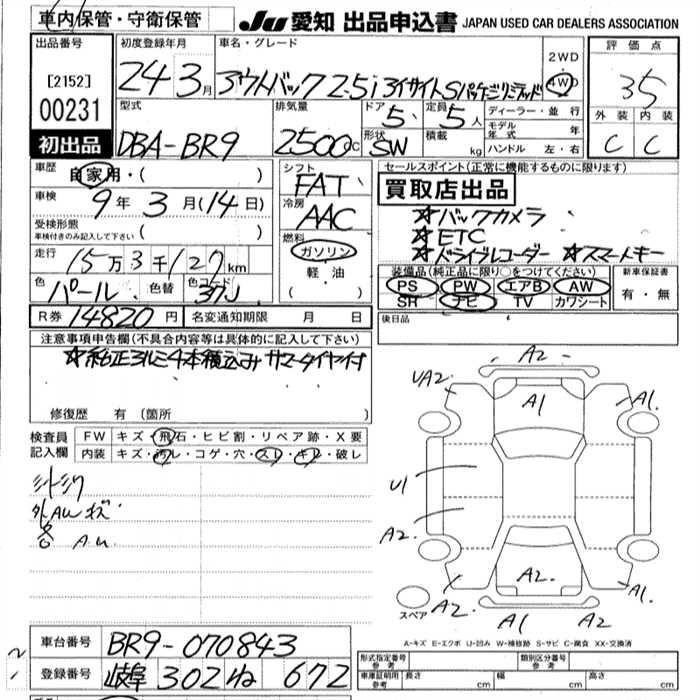 車内保管・守衛保管
JU 愛知 出品申込書 JAPAN USED CAR DEALERS ASSOCIATION
出品番号 [2152] 00231 初出品
初度登録年月 24年3月
車名・グレード アウトバック 2.5i アイサイトSパッケージリミテッド
2WD 4WD
評価点 3.5
外装 C 内装 C
型式 DBA-BR9
排気量 2500cc
ドア 5
形状 SW
定員 5人
積載 kg
ディーラー・並行
モデル年式 年
ハンドル 左・右
車歴 自家用・( )
車検 9年3月(14日)
受検形態 車検付きのみ記入して下さい ( )
走行 15万3千127km
色 パール 色替 色コード 37J
シフト FAT
冷房 AAC
燃料 ガソリン 軽油 ( )
セールスポイント(正常に機能するものに限ります)
買取店出品
☆バックカメラ
☆ETC
☆ドライブレコーダー ☆スマートキー
装備品(純正品に限り○をつけてください)
PS PW エアB AW
SR ナビ TV カワシート
新車保証書 有・無
R券 14820円 名変通知期限 月 日
後日品
注意事項申告欄(不具合内容等は具体的に記入して下さい)
☆純正アルミ4本積込み サマータイヤ付
修復歴 有(箇所 )
検査員記入欄
FW キズ・飛石・ヒビ割・リペア跡・X要
内装 キズ・汚レ・コゲ・穴・スレ・キレ・破レ
外AWキズ
A2
UA2 A1 A1
U1
A2 A2
A2 A2 A1
スペア
A1 A2
A-キズ E-エクボ U-凹み W-補修跡 S-サビ C-腐食 XX-交換済
車台番号 BR9-070843
登録番号 岐阜 302 ね 672
形式指定番号 参考 類別区分番号 参考
車庫証明用 参考 長さ cm 幅 cm 高さ cm